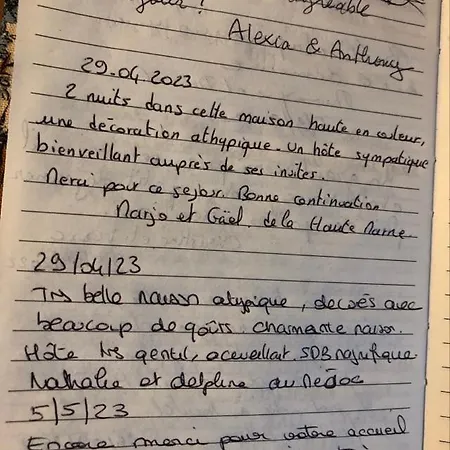 jour ! agréable
Alexia & Anthony
29.04.2023
2 nuits dans cette maison haute en couleur,
une décoration athypique. Un hôte sympatique
bienveillant auprès de ses invités.
Merci pour ce sejour. Bonne continuation
Marjo et Gaël. de la Haute Marne
29/04/23
Trs belle maison atypique, decorés avec
beaucoup de goûts charmante maison.
Hôte trs gentil, acceuillant. SDB magnifique.
Nathalie et delphine du Médoc
5/5/23
Encore merci pour votre accueil